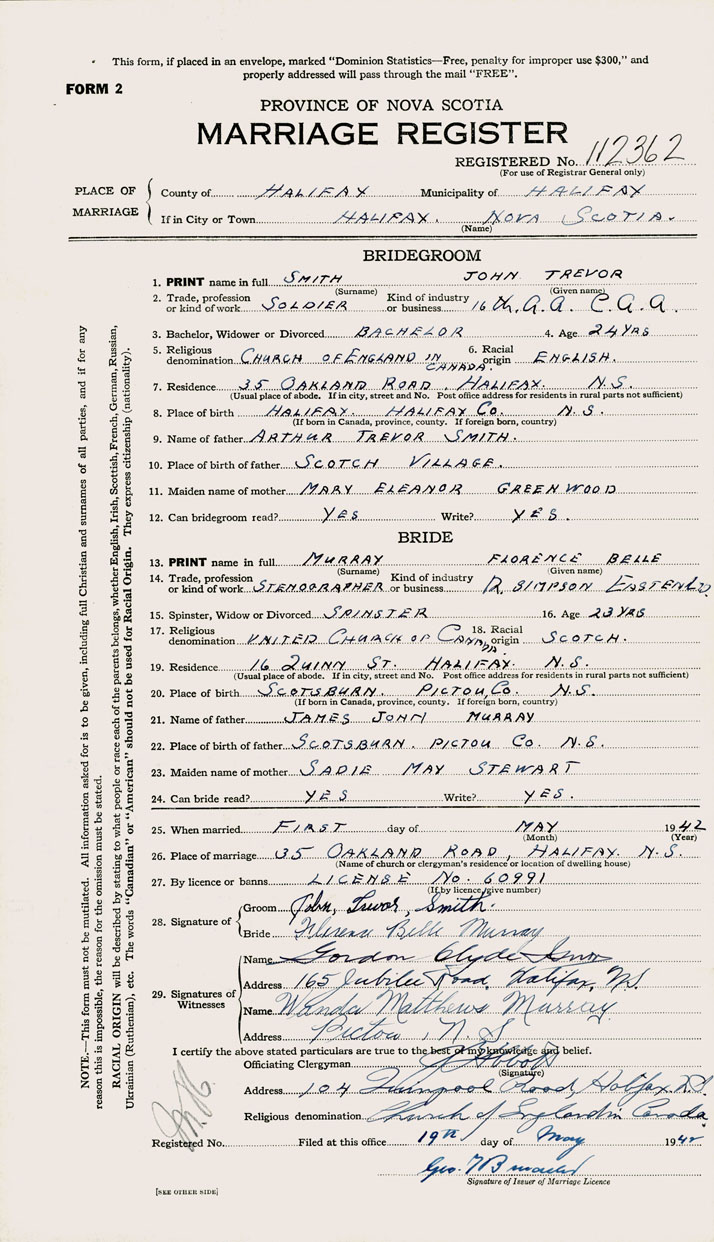 This form, if placed in an envelope, marked "Dominion Statistics—Free, penalty for improper use $300," and
properly addressed will pass through the mail "FREE".
FORM 2
PROVINCE OF NOVA SCOTIA
MARRIAGE REGISTER
REGISTERED No. 112362
(For use of Registrar General only)
PLACE OF MARRIAGE
County of HALIFAX Municipality of HALIFAX
If in City or Town HALIFAX. NOVA SCOTIA.
(Name)
BRIDEGROOM
1. PRINT name in full SMITH JOHN TREVOR
(Surname) (Given name)
2. Trade, profession or kind of work SOLDIER Kind of industry or business 16th. A.A. C.A.A.
3. Bachelor, Widower or Divorced BACHELOR 4. Age 24 YRS
5. Religious denomination CHURCH OF ENGLAND IN CANADA. 6. Racial origin ENGLISH.
7. Residence 35 OAKLAND ROAD, HALIFAX. N.S.
(Usual place of abode. If in city, street and No. Post office address for residents in rural parts not sufficient)
8. Place of birth HALIFAX. HALIFAX CO. N.S.
(If born in Canada, province, county. If foreign born, country)
9. Name of father ARTHUR TREVOR SMITH.
10. Place of birth of father SCOTCH VILLAGE.
11. Maiden name of mother MARY ELEANOR GREENWOOD
12. Can bridegroom read? YES Write? YES.
BRIDE
13. PRINT name in full MURRAY FLORENCE BELLE
(Surname) (Given name)
14. Trade, profession or kind of work STENOGRAPHER Kind of industry or business R. SIMPSON EASTERN LTD.
15. Spinster, Widow or Divorced SPINSTER 16. Age 23 YRS
17. Religious denomination UNITED CHURCH OF CANADA. 18. Racial origin SCOTCH.
19. Residence 16 QUINN ST. HALIFAX. N.S.
(Usual place of abode. If in city, street and No. Post office address for residents in rural parts not sufficient)
20. Place of birth SCOTSBURN. PICTOU, CO. N.S.
(If born in Canada, province, county. If foreign born, country)
21. Name of father JAMES JOHN MURRAY
22. Place of birth of father SCOTSBURN. PICTOU CO. N.S.
23. Maiden name of mother SADIE MAY STEWART
24. Can bride read? YES Write? YES.
25. When married FIRST day of MAY 1942
(Month) (Year)
26. Place of marriage 35 OAKLAND ROAD, HALIFAX. N.S.
(Name of church or clergyman's residence or location of dwelling house)
27. By licence or banns LICENSE No. 60991
(If by licence, give number)
28. Signature of
Groom John, Trevor, Smith.
Bride Florence Belle Murray
29. Signatures of Witnesses
Name Gordon Clyde
Address 165 Jubilee Road, Halifax, N.S.
Name Wanda Matthews Murray
Address Pictou, N.S
I certify the above stated particulars are true to the best of my knowledge and belief.
Officiating Clergyman
(Signature)
Address 104 Quinpool Road, Halifax N.S.
Religious denomination Church of England in Canada
Registered No. Filed at this office 19th day of May 1942
Geo.
Signature of Issuer of Marriage Licence
[SEE OTHER SIDE]
NOTE.—This form must not be mutilated. All information asked for is to be given, including full Christian and surnames of all parties, and if for any
reason this is impossible, the reason for the omission must be stated.
RACIAL ORIGIN will be described by stating to what people or race each of the parents belongs, whether English, Irish, Scottish, French, German, Russian,
Ukrainian (Ruthenian), etc. The words "Canadian" or "American" should not be used for Racial Origin. They express citizenship (nationality).